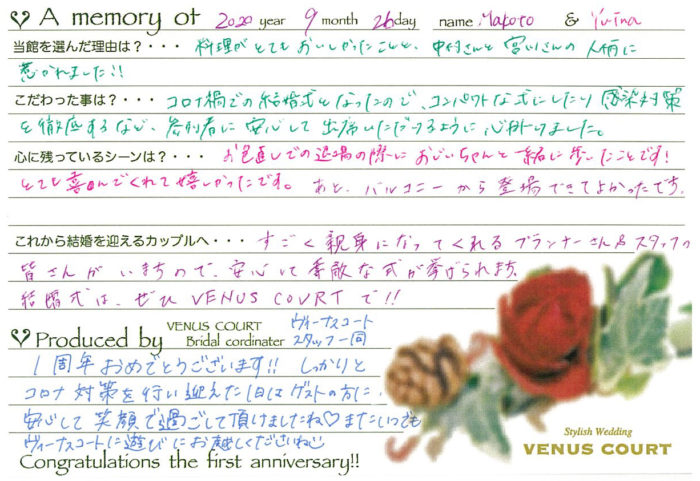 A memory of 2020 year 9 month 26 day name Makoto & Yuina
当館を選んだ理由は?・・・ 料理がとてもおいしかったことと、中村さんと宮川さんの人柄に
惹かれました!!
こだわった事は?・・・ コロナ禍での結婚式となったので、コンパクトな式にしたり 感染対策
を徹底するなど、参列者に安心して出席いただけるように心掛けました。
心に残っているシーンは?・・・ お色直しでの退場の際におじいちゃんと一緒に歩いたことです!
とても喜んでくれて嬉しかったです。 あと、バルコニーから登場できてよかったです。
これから結婚を迎えるカップルへ・・・ すごく親身になってくれるプランナーさん&スタッフの
皆さんがいますので、安心して素敵な式が挙げられます。
結婚式は、ぜひ VENUS COURT で!!
Produced by VENUS COURT Bridal cordinater ヴィーナスコート スタッフ一同
1周年おめでとうございます!! しっかりと
コロナ対策を行い迎えた1日はゲストの方に、
安心して笑顔で過ごして頂けましたね♡ またいつでも
ヴィーナスコートに遊びにお越しくださいね
Congratulations the first anniversary!!
Stylish Wedding
VENUS COURT